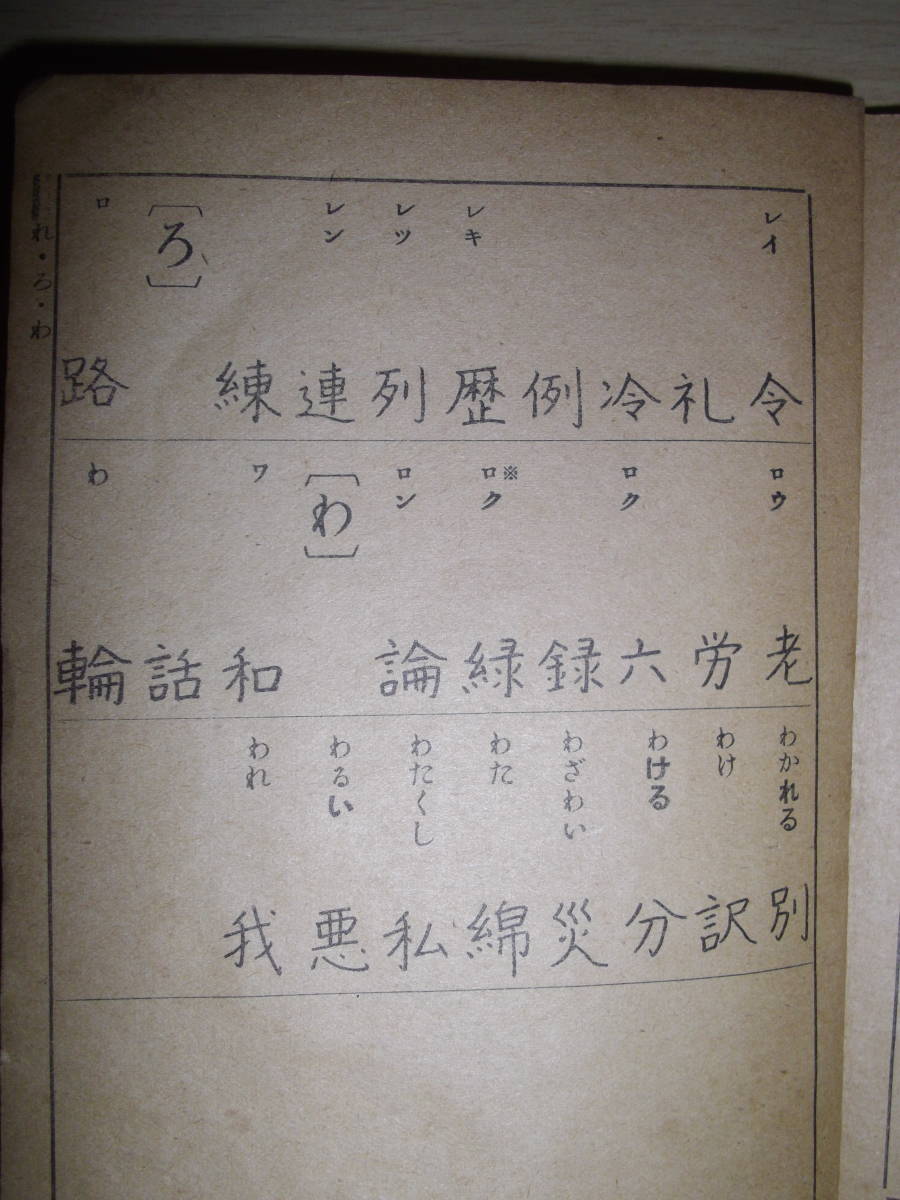 れ・ろ・わ
レイ 令
礼
冷
例
レキ 歴
レツ 列
レン 連
練
［ろ］
ロ 路
ロウ 老
労
ロク 六
録
※ロク 緑
ロン 論
［わ］
ワ 和
話
わ 輪
わかれる 別
わけ 訳
わける 分
わざわい 災
わた 綿
わたくし 私
わるい 悪
われ 我